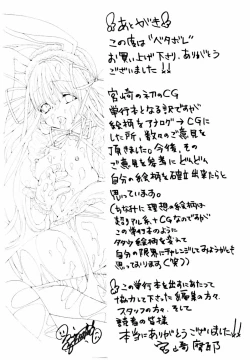 あとがき
この度は"ベタボレ"
お買い上げ下さり、ありがとう
ございました!!
宮崎の初のCG
単行本となる訳ですが
絵柄をアナログ→CGに
した所、数々のご意見を
頂きました。今後、その
ご意見を参考にどんどん
自分の絵柄を確立出来たらと
思っています。
(ちなみに理想の絵柄は
超リアル系+CGなのですが
この単行本のように
絵柄を変えて
自分の限界にチャレンジしてみようかとも
思っております(笑))
この単行本を出すにあたって
協力して下さった編集の方々、
スタッフの方々、そして
読者の皆様
本当にありがとうございました!!
宮崎摩耶